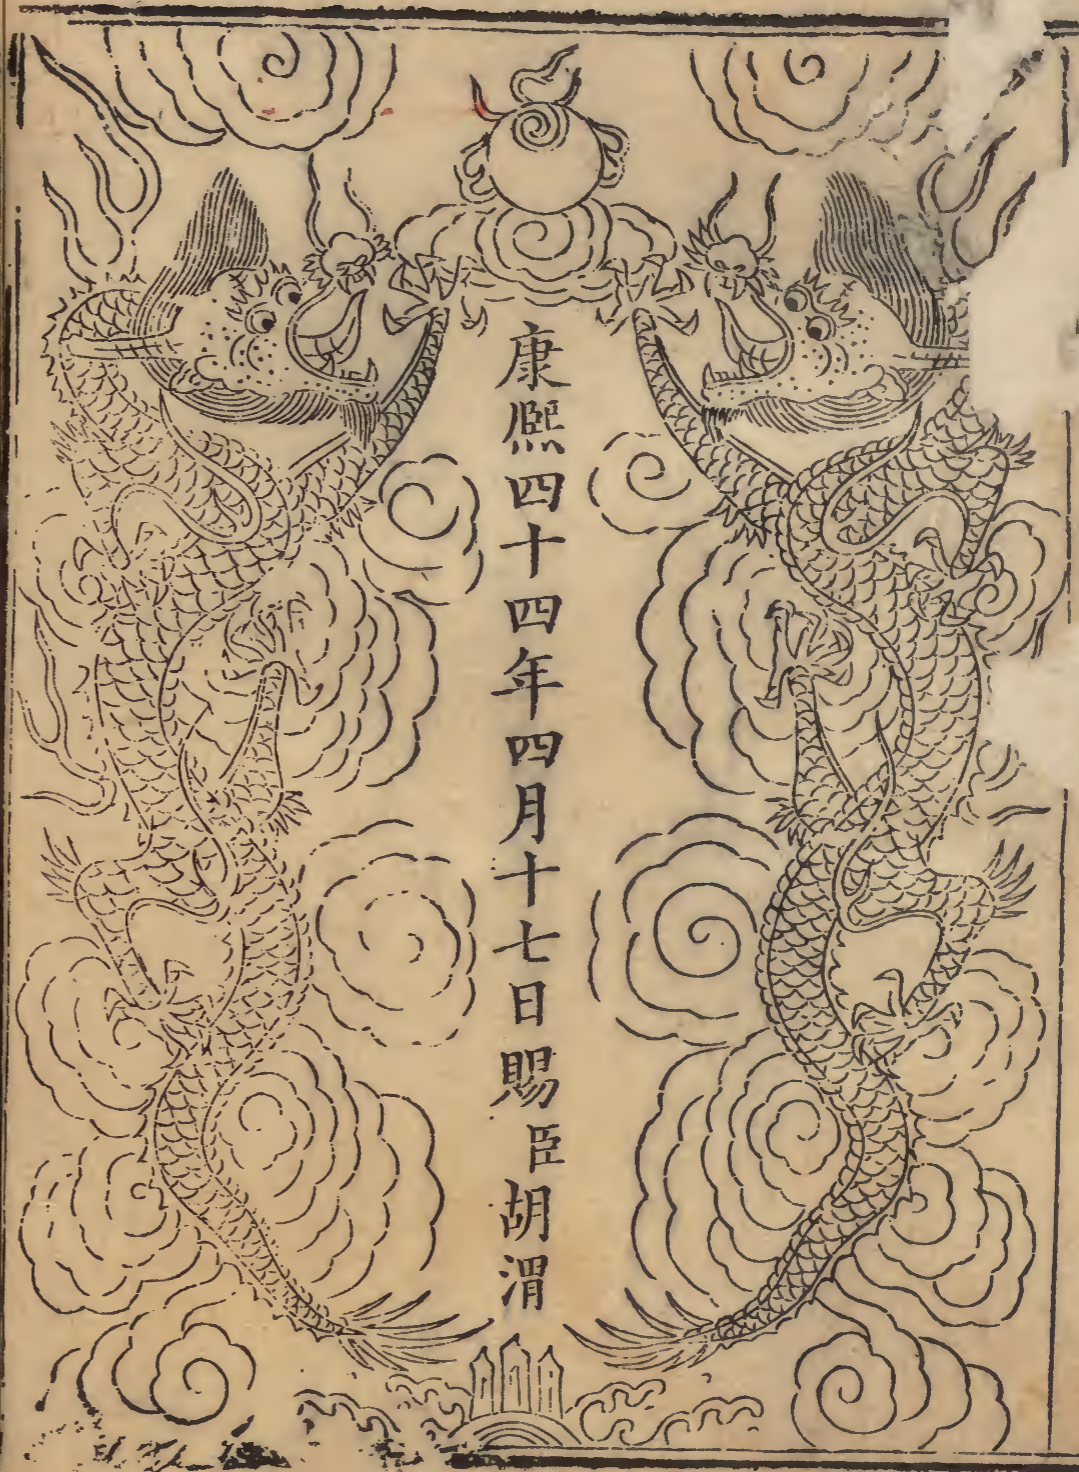 康熙四十四年四月十七日賜臣胡渭